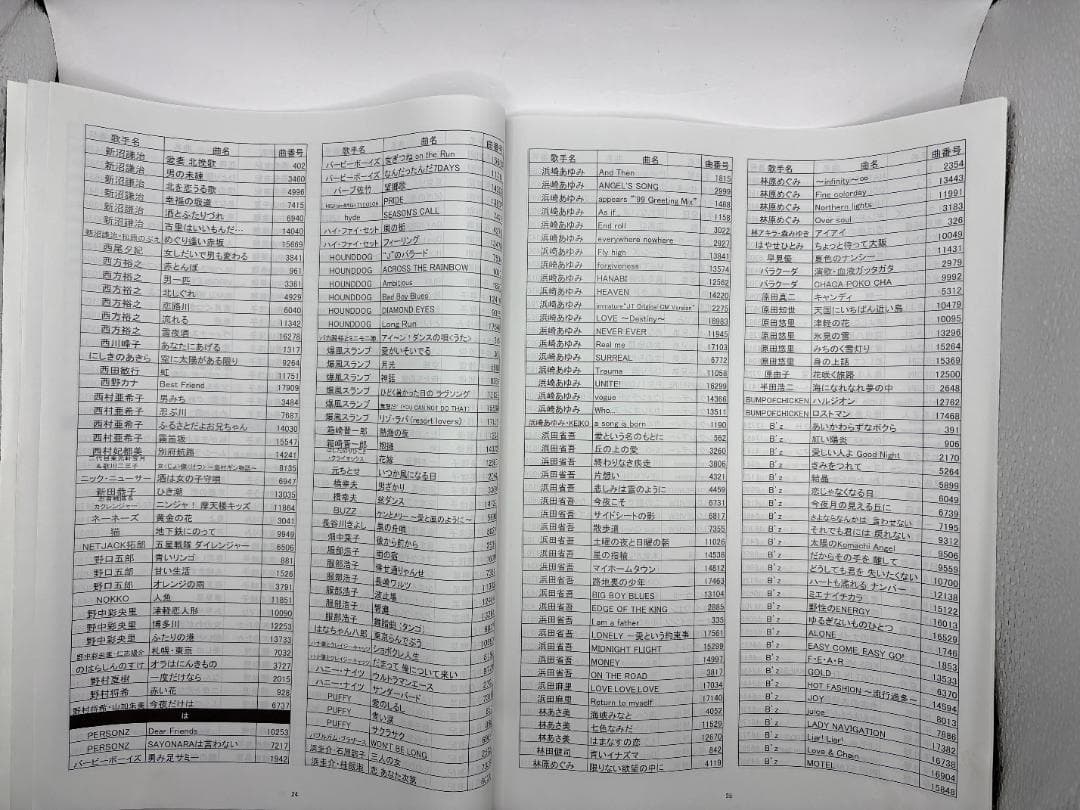 歌手名 曲名 曲番号
新沼謙治 愛妻 北挽歌 402
新沼謙治 男の未練 3460
新沼謙治 北を恋うる歌 4996
新沼謙治 幸福の坂道 7415
新沼謙治 酒とふたりづれ 6940
新沼謙治 古里はいいもんだ… 14040
めぐり逢い赤坂 15669
西尾夕紀 女しだいで男も変わる 3841
西方裕之 赤とんぼ 961
西方裕之 男一匹 3361
西方裕之 北しぐれ 4929
西方裕之 恋路川 6040
西方裕之 流れる 11342
西方裕之 雪夜酒 16278
西川峰子 あなたにあげる 1317
にしきのあきら 空に太陽がある限り 9264
西田敏行 虹 11751
西野カナ Best Friend 17909
西村亜希子 男みち 3484
西村亜希子 忍ぶ川 7687
西村亜希子 ふるさとだよお兄ちゃん 14030
西村亜希子 霧笛坂 15547
西村妃都美 別府航路 14241
8135
ニック・ニューサー 酒は女の子守唄 6947
新田恭子 ひき潮 13035
カクレンジャー ニンジャ！摩天楼キッズ 11864
ネーネーズ 黄金の花 3041
猫 地下鉄にのって 9949
NETJACK拓郎 五星戦隊 ダイレンジャー 6506
野口五郎 青いリンゴ 881
野口五郎 甘い生活 1526
野口五郎 オレンジの雨 3791
NOKKO 人魚 11851
野中彩央里 津軽恋人形 10090
野中彩央里 博多川 12253
野中彩央里 ふたりの港 13733
札幌・東京 7032
のはらしんのすけ オラはにんきもの 3727
野村夏樹 一度だけなら 2015
野村将希 赤い花 928
野村将希・山加朱美 今夜だけは 6737
は
PERSONZ Dear Friends 10253
PERSONZ SAYONARAは言わない 7217
バービーボーイズ 男み足サミー 1942
歌手名 曲名 曲番号
バービーボーイズ 女ぎつね on the Run
バービーボーイズ なんだったんだ7DAYS
バーブ佐竹 望郷歌
PRIDE
hyde SEASON'S CALL
ハイ・ファイ・セット 風の街
ハイ・ファイ・セット フィーリング
HOUNDDOG "J"のバラード
HOUNDDOG ACROSS THE RAINBOW
HOUNDDOG Ambitious
HOUNDDOG Bad Boy Blues
HOUNDDOG DIAMOND EYES
HOUNDDOG Long Run
バカ殿様とミニモニ姫 アイ～ン！ダンスの唄<うた>
爆風スランプ 愛がいそいでる
爆風スランプ 月光
爆風スランプ 神話
爆風スランプ ひどく暑かった日のラヴソング
爆風スランプ (YOU CAN NOT DO THAT)
爆風スランプ リゾ・ラバ(resort lovers)
箱崎晋一郎 熱海の夜
箱崎晋一郎 抱擁
花嫁
元ちとせ いつか風になる日
橋幸夫 男ざかり
橋幸夫 盆ダンス
BUZZ ケンとメリー～愛と風のように～
長谷川きよし 黒の舟唄
畑中葉子 後から前から
服部浩子 雨の宿
服部浩子 幸せ通りゃんせ
服部浩子 長崎ワルツ
服部浩子 波止場
服部浩子
はなちゃん八郎 東京らんでぶう
ショボクレ人生
だまって俺について来い
ハニー・ナイツ ウルトラマンエース
ハニー・ナイツ サンダーバード
PUFFY 愛のしるし
PUFFY 青い涙
PUFFY サクラサク
バブルガム・ブラザーズ WON'T BE LONG
浜圭介・石原詢子 三人の女
浜圭介・桂銀淑 恋 あなた次第
24
歌手名 曲名 曲番号
浜崎あゆみ And Then 1815
浜崎あゆみ ANGEL'S SONG 2999
浜崎あゆみ appears "99 Greeting Mix" 1488
浜崎あゆみ As if... 1158
浜崎あゆみ End roll 3022
浜崎あゆみ everywhere nowhere 2927
浜崎あゆみ Fly high 13841
浜崎あゆみ forgiveness 13574
浜崎あゆみ HANABI 12562
浜崎あゆみ HEAVEN 14220
浜崎あゆみ immature"JT Original GM Version" 2275
浜崎あゆみ LOVE ～Destiny～ 16983
浜崎あゆみ NEVER EVER 11945
浜崎あゆみ Real me 17103
浜崎あゆみ SURREAL 6772
浜崎あゆみ Trauma 11058
浜崎あゆみ UNITE! 16299
浜崎あゆみ vogue 14366
浜崎あゆみ Who... 13511
浜崎あゆみ・KEIKO a song is born 1190
浜田省吾 愛という名のもとに 562
浜田省吾 丘の上の愛 3260
浜田省吾 終わりなき疾走 3806
浜田省吾 片想い 4321
浜田省吾 悲しみは雪のように 4459
浜田省吾 今夜こそ 6731
浜田省吾 サイドシートの影 6817
浜田省吾 散歩道 7355
浜田省吾 土曜の夜と日曜の朝 11026
浜田省吾 星の指輪 14536
浜田省吾 マイホームタウン 14812
浜田省吾 路地裏の少年 17463
浜田省吾 BIG BOY BLUES 13104
浜田省吾 EDGE OF THE KING 2885
浜田省吾 I am a father 335
浜田省吾 LONELY ―愛という約束事 17561
浜田省吾 MIDNIGHT FLIGHT 15299
浜田省吾 MONEY 14997
浜田省吾 ON THE ROAD 3817
浜田麻里 LOVE LOVE LOVE 17034
浜田麻里 Return to myself 17140
林あさ美 海峡みなと 4052
林あさ美 七色なみだ 11529
林あさ美 はまなすの恋 12670
林田健司 青いイナズマ 842
林原めぐみ 限りない欲望の中に 4119
歌手名 曲名 曲番号
林原めぐみ ～infinity～∞ 2354
林原めぐみ Fine colorday 13443
林原めぐみ Northern lights 11991
林原めぐみ Over soul 3183
林アキラ・森みゆき アイアイ 326
はやせひとみ ちょっと待って大阪 10049
早見優 夏色のナンシー 11431
バラクーダ 演歌・血液ガッタガタ 2979
バラクーダ CHACA POKO CHA 9992
原田真二 キャンディ 5312
原田知世 天国にいちばん近い島 10479
原田悠里 津軽の花 10095
原田悠里 氷見の雪 13296
原田悠里 みちのく雪灯り 15264
原田悠里 身の上話 15369
原由子 花咲く旅路 12500
半田浩二 海になれなれ夢の中 2648
BUMPOFCHICKEN ハルジオン 12762
BUMPOFCHICKEN ロストマン 17468
B'z あいかわらずなボクら 391
B'z 紅い陽炎 906
B'z 愛しい人よ Good Night 2170
B'z きみをつれて 5264
B'z 結晶 5899
B'z 恋じゃなくなる日 6049
B'z 今夜月の見える丘に 6739
B'z さよならなんかは 言わせない 7195
B'z それでも君には 戻れない 9312
B'z 太陽のKomachi Angel 9506
B'z だからその手を 離して 9559
B'z どうしても君を 失いたくない 10700
B'z ハートも濡れる ナンバー 12138
B'z ミエナイチカラ 15122
B'z 野性のENERGY 16013
B'z ゆるぎないものひとつ 16529
B'z ALONE 1746
B'z EASY COME EASY GO! 1853
B'z F・E・A・R 13533
B'z GOLD 6370
B'z HOT FASHION ～流行過多～ 14594
B'z JOY 8013
B'z juice 7886
B'z LADY NAVIGATION 17382
B'z Liar! Liar! 16738
B'z Love & Chain 16904
B'z MOTEL 15848
25